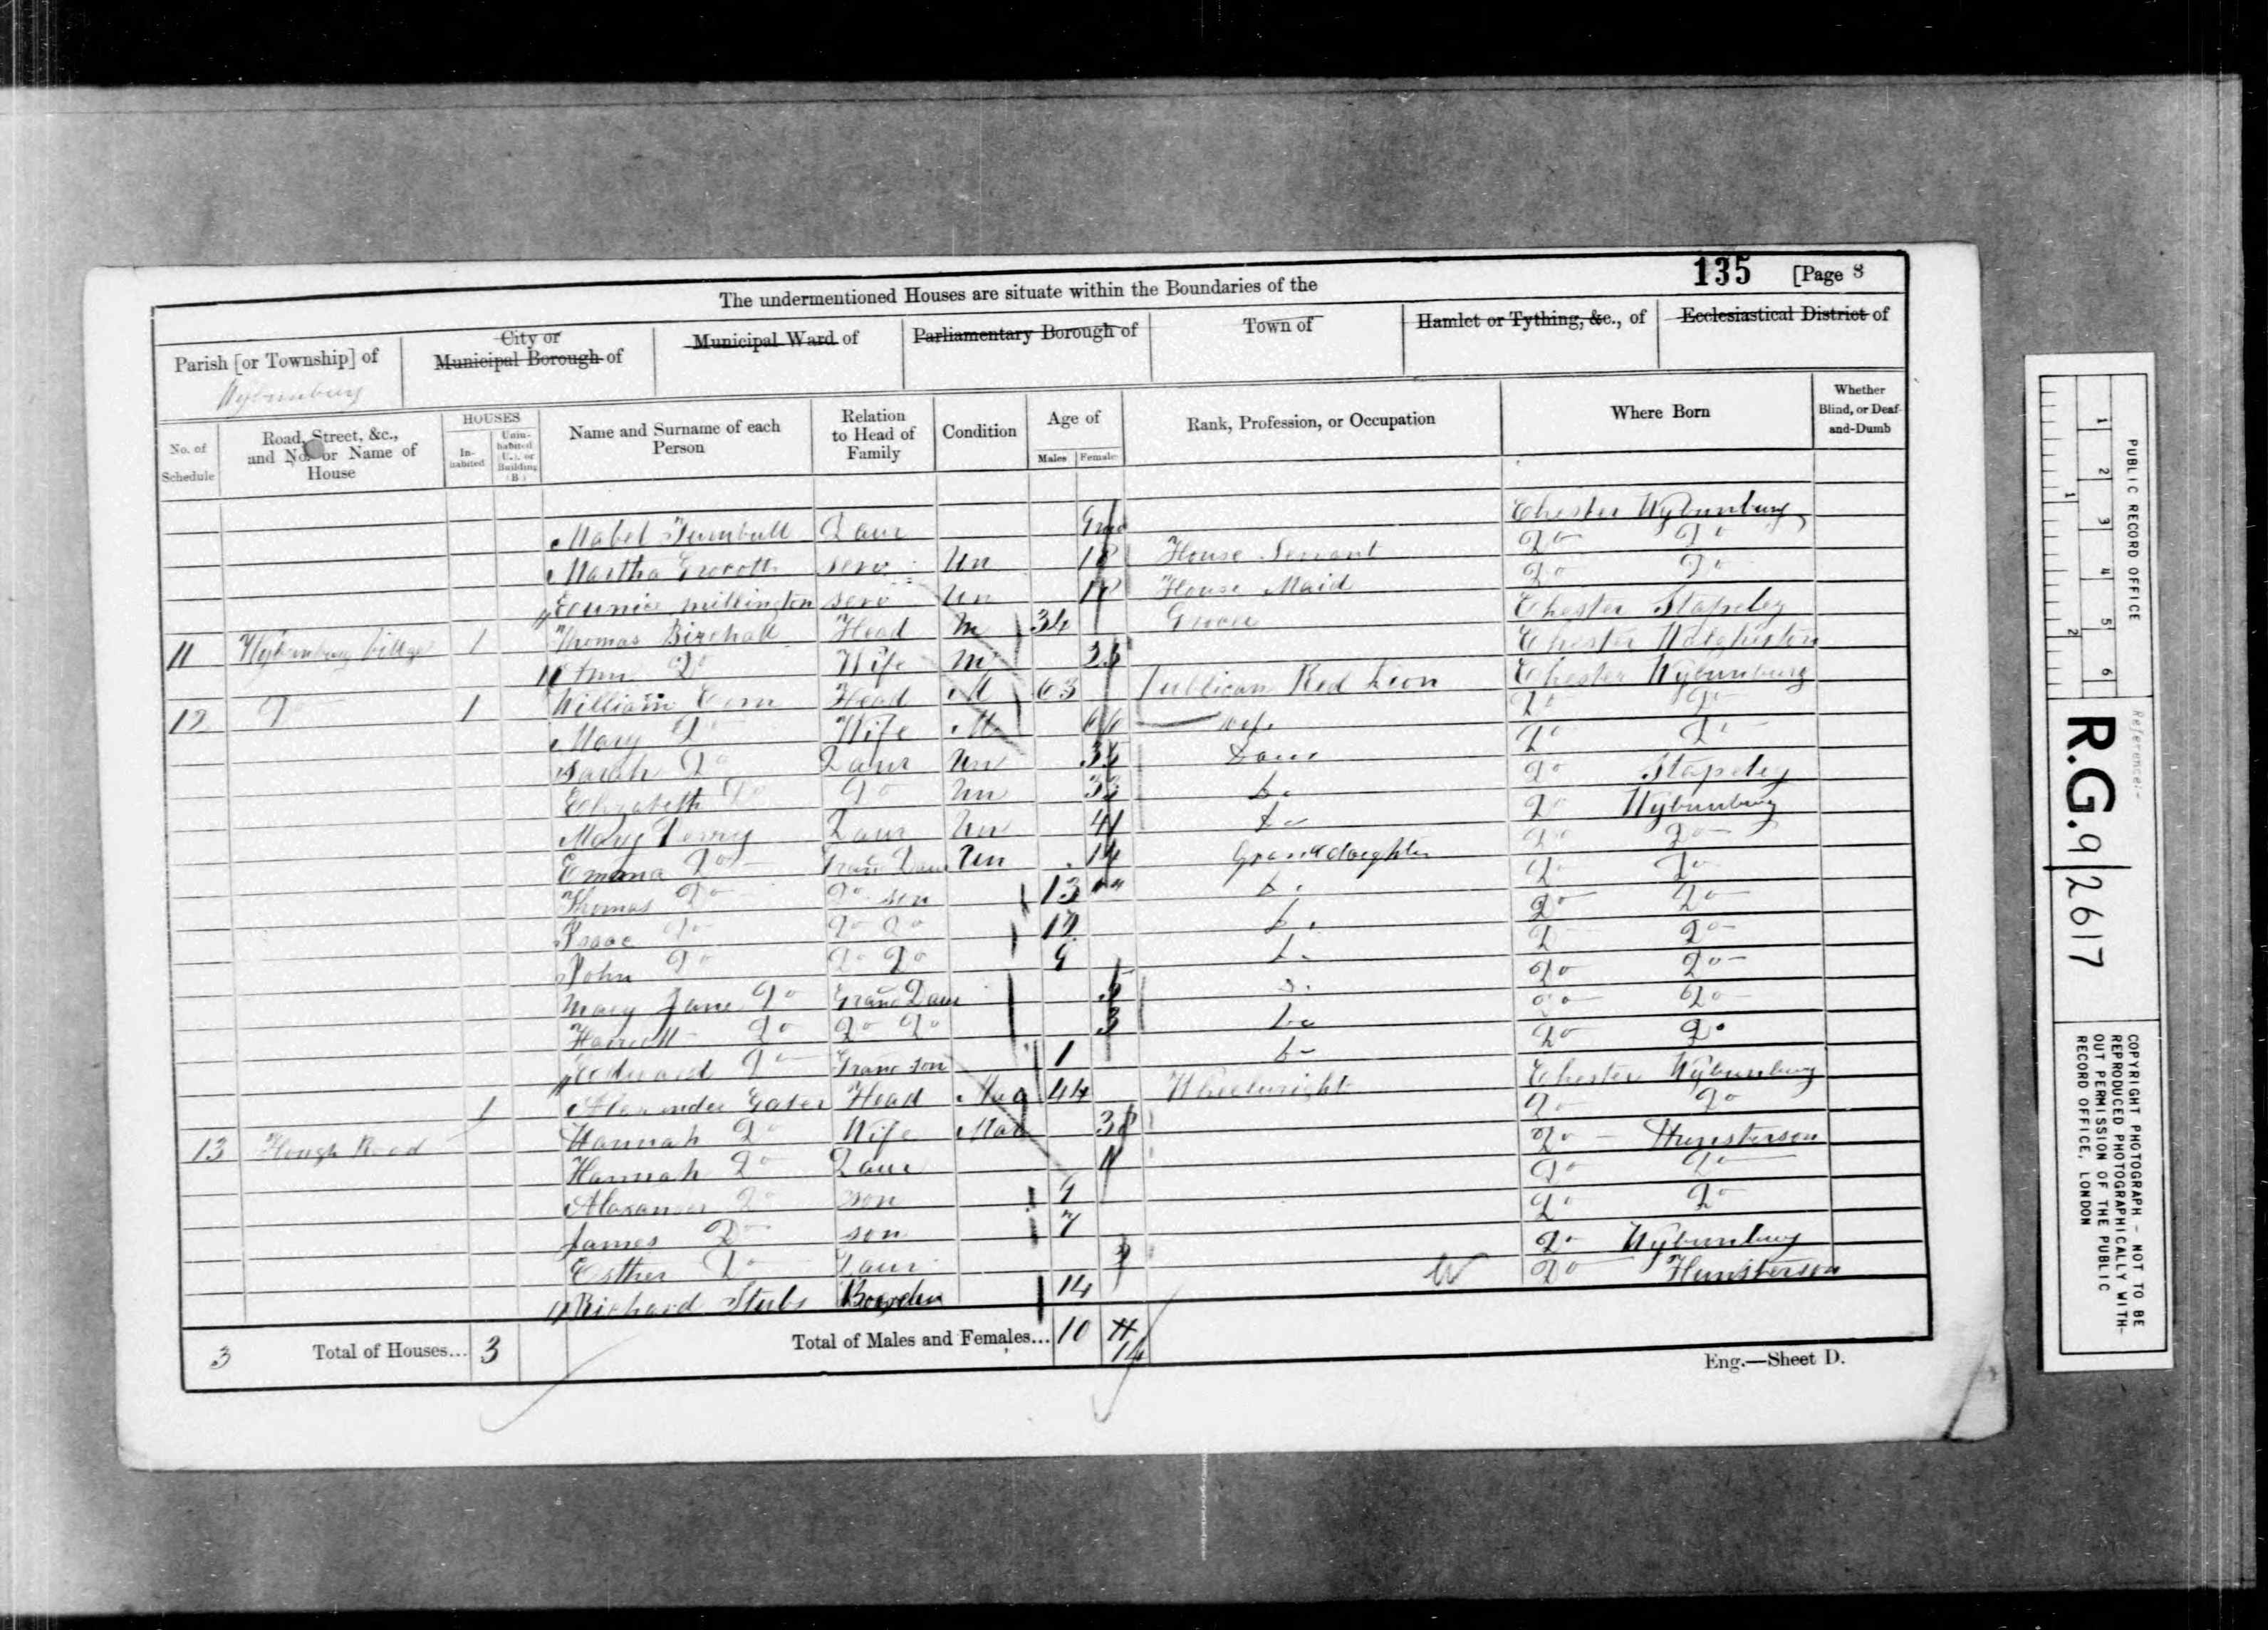 135 [Page 8
The undermentioned Houses are situate within the Boundaries of the
Parish [or Township] of
Wybunbury
City or Municipal Borough of
Municipal Ward of
Parliamentary Borough of
Town of
Hamlet or Tything, &c., of
Ecclesiastical District of
No. of Schedule
Road, Street, &c., and No. or Name of House
HOUSES
In-habited
Unin-habited (U.), or Building (B)
Name and Surname of each Person
Relation to Head of Family
Condition
Age of
Males Females
Rank, Profession, or Occupation
Where Born
Whether Blind, or Deaf-and-Dumb
Mabel Turnbull Daur Chester Wybunbury
Martha Grocott serv Un 18 House Servant Do Do
Eunice Millington serv Un 18 House Maid Do Do
11 Wybunbury Village 1 Thomas Birchall Head M 34 Grocer Chester Stapeley
Ann Do Wife M Chester
12 Do 1 William Head M 63 Publican Red Lion Chester Wybunbury
Mary Do Wife M 66 wife Do Do
Sarah Do Daur Un Daur Do Do
Elizabeth Do Do Un 33 Do Do Stapeley
Mary Daur Un 41 Do Do Wybunbury
Emma Do Grand Daur Un 14 Granddaughter Do Do
Thomas Do Do son 13 Do Do Do
Isaac Do Do Do Do Do Do
John Do Do Do 9 Do Do Do
Mary Jane Do Grand Daur 5 Do Do Do
Harriett Do Do Do 3 Do Do Do
Edward Do Grand son 1 Do Do Do
13 Hough Road 1 Alexander Gater Head Mar 44 Wheelwright Chester Wybunbury
Hannah Do Wife Mar 38 Do Do
Hannah Do Daur Do Hunsterson
Alexander Do son 9 Do Do
James Do son 7 Do Do
Esther Do Daur Do Wybunbury
Richard Stubs 14 Do Hunsterson
3 Total of Houses... 3 Total of Males and Females... 10 14
Eng.—Sheet D.
PUBLIC RECORD OFFICE
1 2 3 4 5 6
1 2
Reference:-
R.G. 9/2617
COPYRIGHT PHOTOGRAPH - NOT TO BE
REPRODUCED PHOTOGRAPHICALLY WITH-
OUT PERMISSION OF THE PUBLIC
RECORD OFFICE, LONDON